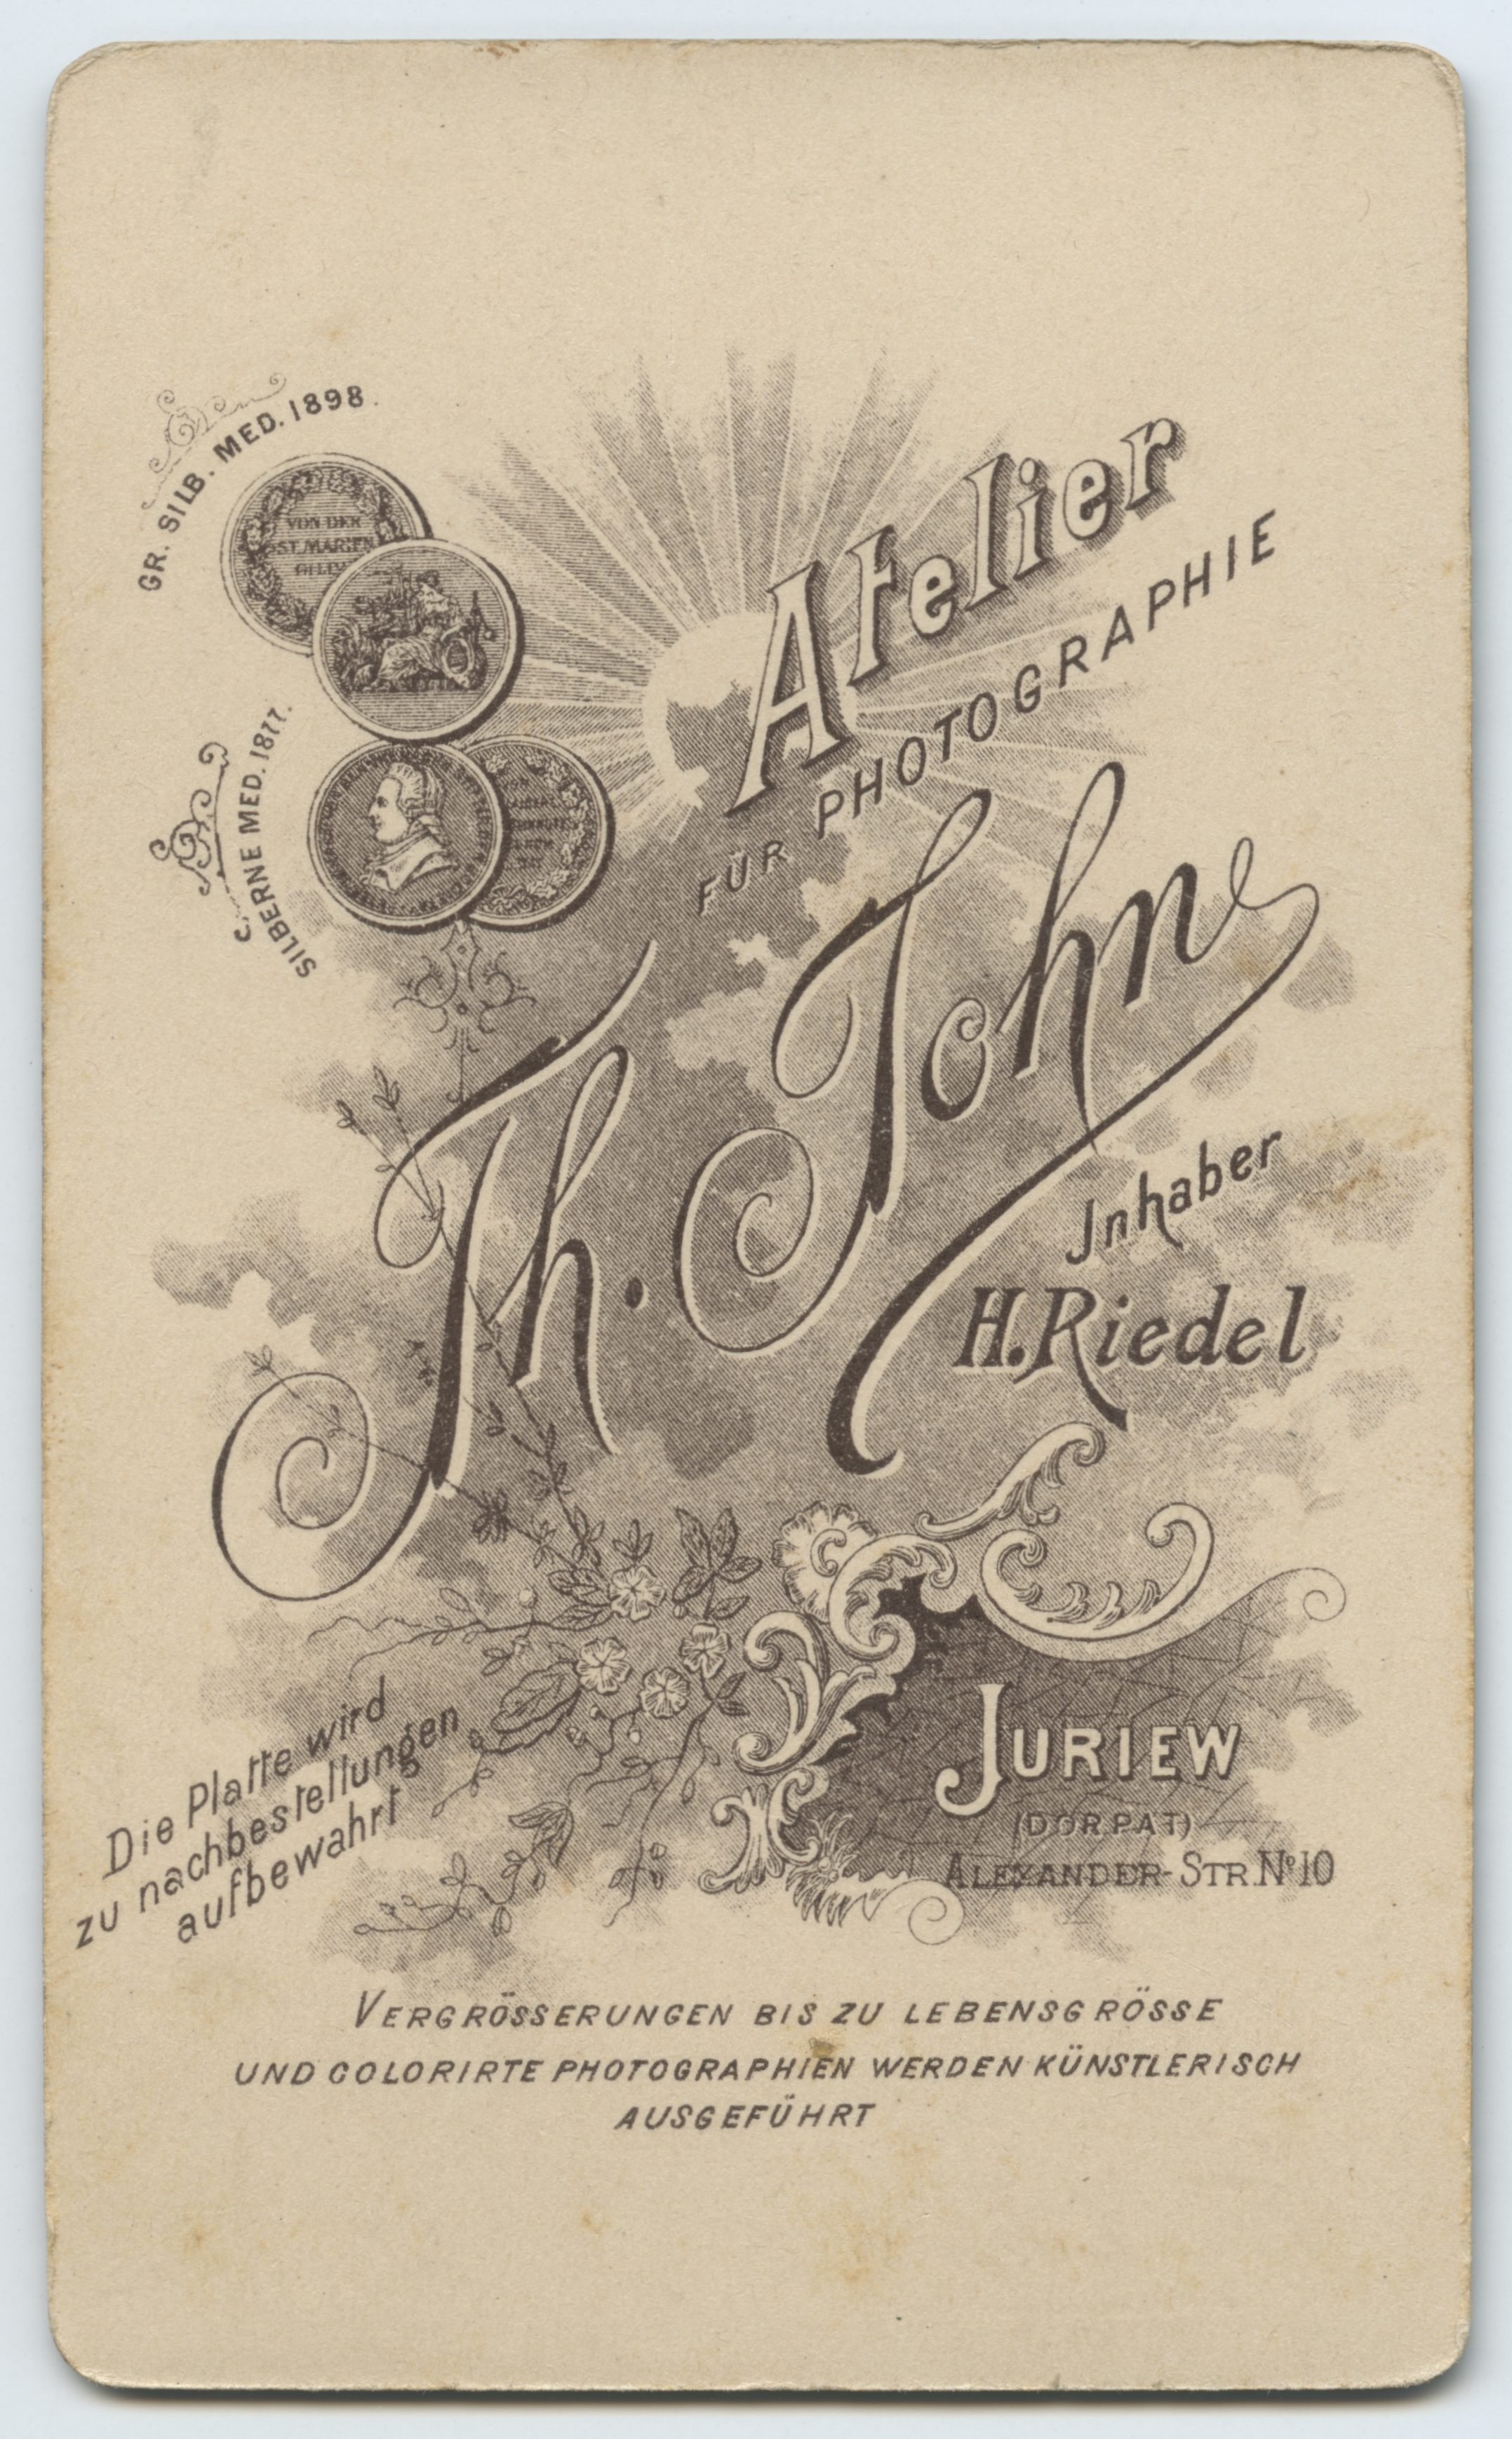 GR. SILB. MED. 1898.
VON DER
ST. MARIEN
SILBERNE MED. 1877.
Atelier
FÜR PHOTOGRAPHIE
Th. John
Inhaber
H. Riedel
JURIEW
(DORPAT)
ALEXANDER-STR. No 10
Die Platte wird
zu nachbestellungen
aufbewahrt
VERGRÖSSERUNGEN BIS ZU LEBENSGRÖSSE
UND COLORIRTE PHOTOGRAPHIEN WERDEN KÜNSTLERISCH
AUSGEFÜHRT